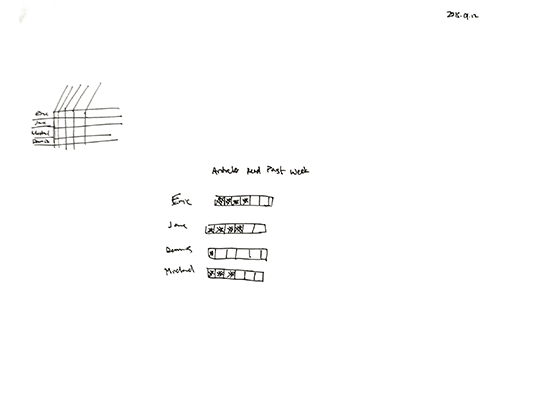 2018.9.12
Eric
Jane
Michael
Dennis
Articles Read Past Week
Eric
Jane
Dennis
Michael